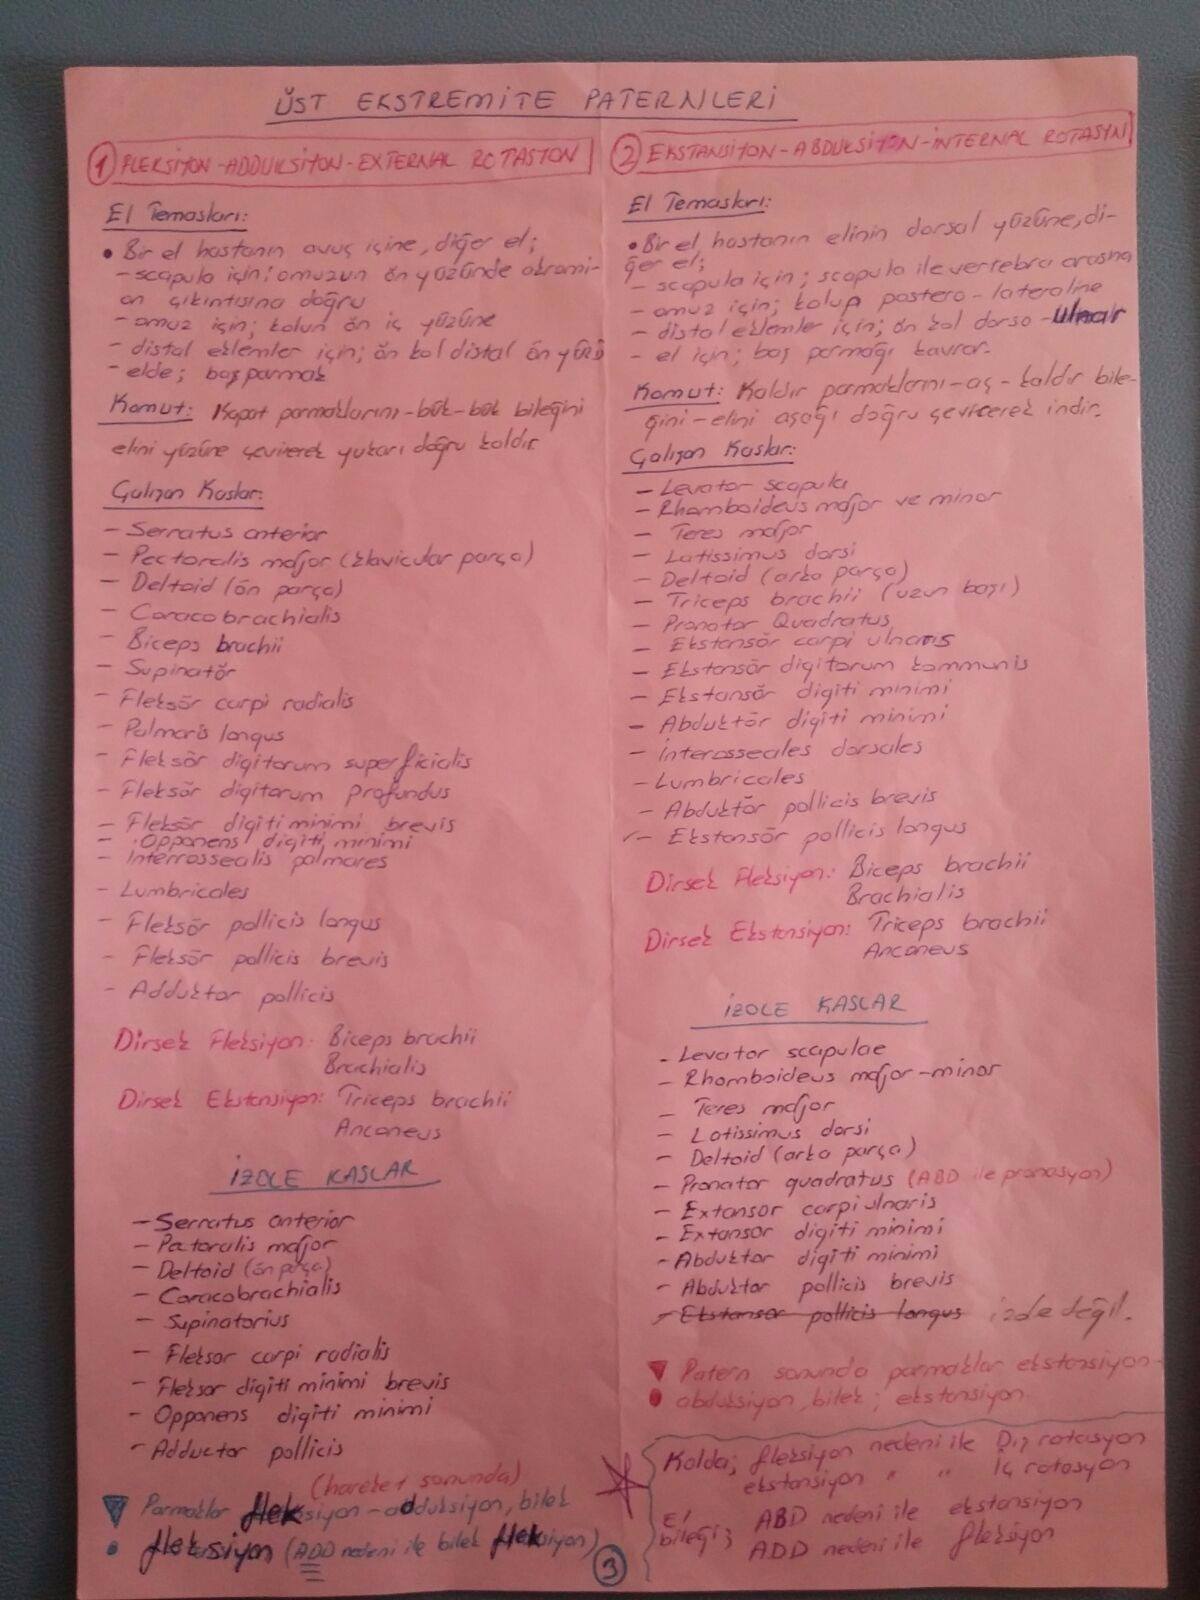 ÜST EKSTREMİTE PATERNLERİ
① FLEKSİYON-ADDUKSİYON-EXTERNAL ROTASYON
El Temasları:
• Bir el hastanın avuç içine, diğer el;
- scapula için; omuzun ön yüzünde akromi-
on çıkıntısına doğru
- omuz için; kolun ön iç yüzüne
- distal eklemler için; ön kol distal ön yüzü
- elde; baş parmak
Komut: Kapat parmaklarını-bük-bük bileğini
elini yüzüne çevirerek yukarı doğru kaldır.
Çalışan Kaslar:
- Serratus anterior
- Pectoralis major (klavicular parça)
- Deltoid (ön parça)
- Coracobrachialis
- Biceps brachii
- Supinatör
- Fleksör carpi radialis
- Palmaris longus
- Fleksör digitorum superficialis
- Fleksör digitorum profundus
- Fleksör digiti minimi brevis
- Opponens digiti minimi
- Interrossealis palmares
- Lumbricales
- Fleksör pollicis longus
- Fleksör pollicis brevis
- Adduktor pollicis
Dirsek Fleksiyon: Biceps brachii
Brachialis
Dirsek Ekstansiyon: Triceps brachii
Anconeus
İZOLE KASLAR
- Serratus anterior
- Pectoralis major
- Deltoid (ön parça)
- Coracobrachialis
- Supinatorius
- Fleksor carpi radialis
- Fleksor digiti minimi brevis
- Opponens digiti minimi
- Adductor pollicis
(hareket sonunda)
Parmaklar fleksiyon-adduksiyon, bilek
• fleksiyon (ADD nedeni ile bilek fleksiyon)
② EKSTANSİYON-ABDUKSİYON-İNTERNAL ROTASYN
El Temasları:
• Bir el, hastanın elinin dorsal yüzüne, di-
ğer el;
- scapula için; scapula ile vertebra arasına
- omuz için; kolun postero-lateraline
- distal eklemler için; ön kol dorso-ulnar
- el için; baş parmağı kavrar.
Komut: Kaldır parmaklarını-aç-kaldır bile-
ğini-elini aşağı doğru çevirerek indir.
Çalışan Kaslar:
- Levator scapula
- Rhomboideus major ve minor
- Teres major
- Latissimus dorsi
- Deltoid (arka parça)
- Triceps brachii (uzun başı)
- Pronator Quadratus
- Ekstansör carpi ulnaris
- Ekstansör digitorum kommunis
- Ekstansör digiti minimi
- Abduktör digiti minimi
- İnterosseales dorsales
- Lumbricales
- Abduktör pollicis brevis
- Ekstansör pollicis longus
Dirsek Fleksiyon: Biceps brachii
Brachialis
Dirsek Ekstansiyon: Triceps brachii
Anconeus
İZOLE KASLAR
- Levator scapulae
- Rhomboideus major-minor
- Teres major
- Latissimus dorsi
- Deltoid (arka parça)
- Pronator quadratus (ABD ile pronasyon)
- Extansor carpi ulnaris
- Extansor digiti minimi
- Abduktor digiti minimi
- Abduktor pollicis brevis
- Ekstansor pollicis longus izole değil.
Patern sonunda parmaklar ekstansiyon-
• abduksiyon, bilek; ekstansiyon.
Kolda; fleksiyon nedeni ile Dış rotasyon
ekstansiyon " " İç rotasyon
El bileği; ABD nedeni ile ekstansiyon
ADD nedeni ile fleksiyon
③